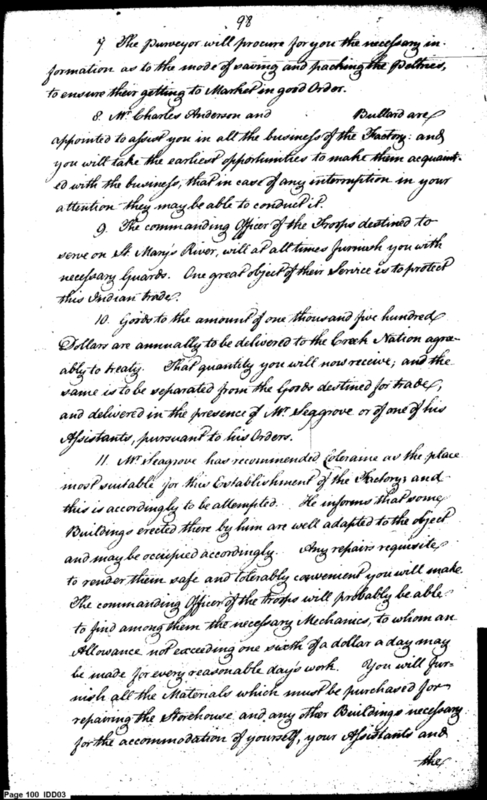 98
7. The Purveyor will procure for you the necessary in-
formation as to the mode of saving and packing the Peltries,
to ensure their getting to Market in good Order.
8. Mr. Charles Anderson and Bullard are
appointed to assist you in all the business of the Factory: and
you will take the earliest opportunities to make them acquaint-
ed with the business, that in case of any interruption in your
attention they may be able to conduct it.
9. The commanding Officer of the Troops destined to
serve on St. Mary's River, will at all times furnish you with
necessary Guards. One great object of their Service is to protect
this Indian trade.
10. Goods to the amount of one thousand five hundred
Dollars are annually to be delivered to the Creek Nation agre-
ably to treaty. That quantity you will now receive; and the
same is to be separated from the Goods destined for trade,
and delivered in the presence of Mr. Seagrove or of one of his
Assistants, pursuant to his Orders.
11. Mr. Seagrove has recommended Coleraine as the place
most suitable for this Establishment of the Factory; and
this is accordingly to be attempted. He informs that some
Buildings erected there by him are well adapted to the object
and may be occupied accordingly. Any repairs requisite
to render them safe and tolerably convenient you will make.
The commanding Officer of the Troops will probably be able
to find among them the necessary Mechanics, to whom an
Allowance not exceeding one sixth of a dollar a day may
be made for every reasonable day's work. You will fur-
nish all the Materials which must be purchased for
repairing the Storehouse and any other Buildings necessary
for the accommodation of yourself, your Assistants and
the
Page 100 IDD03